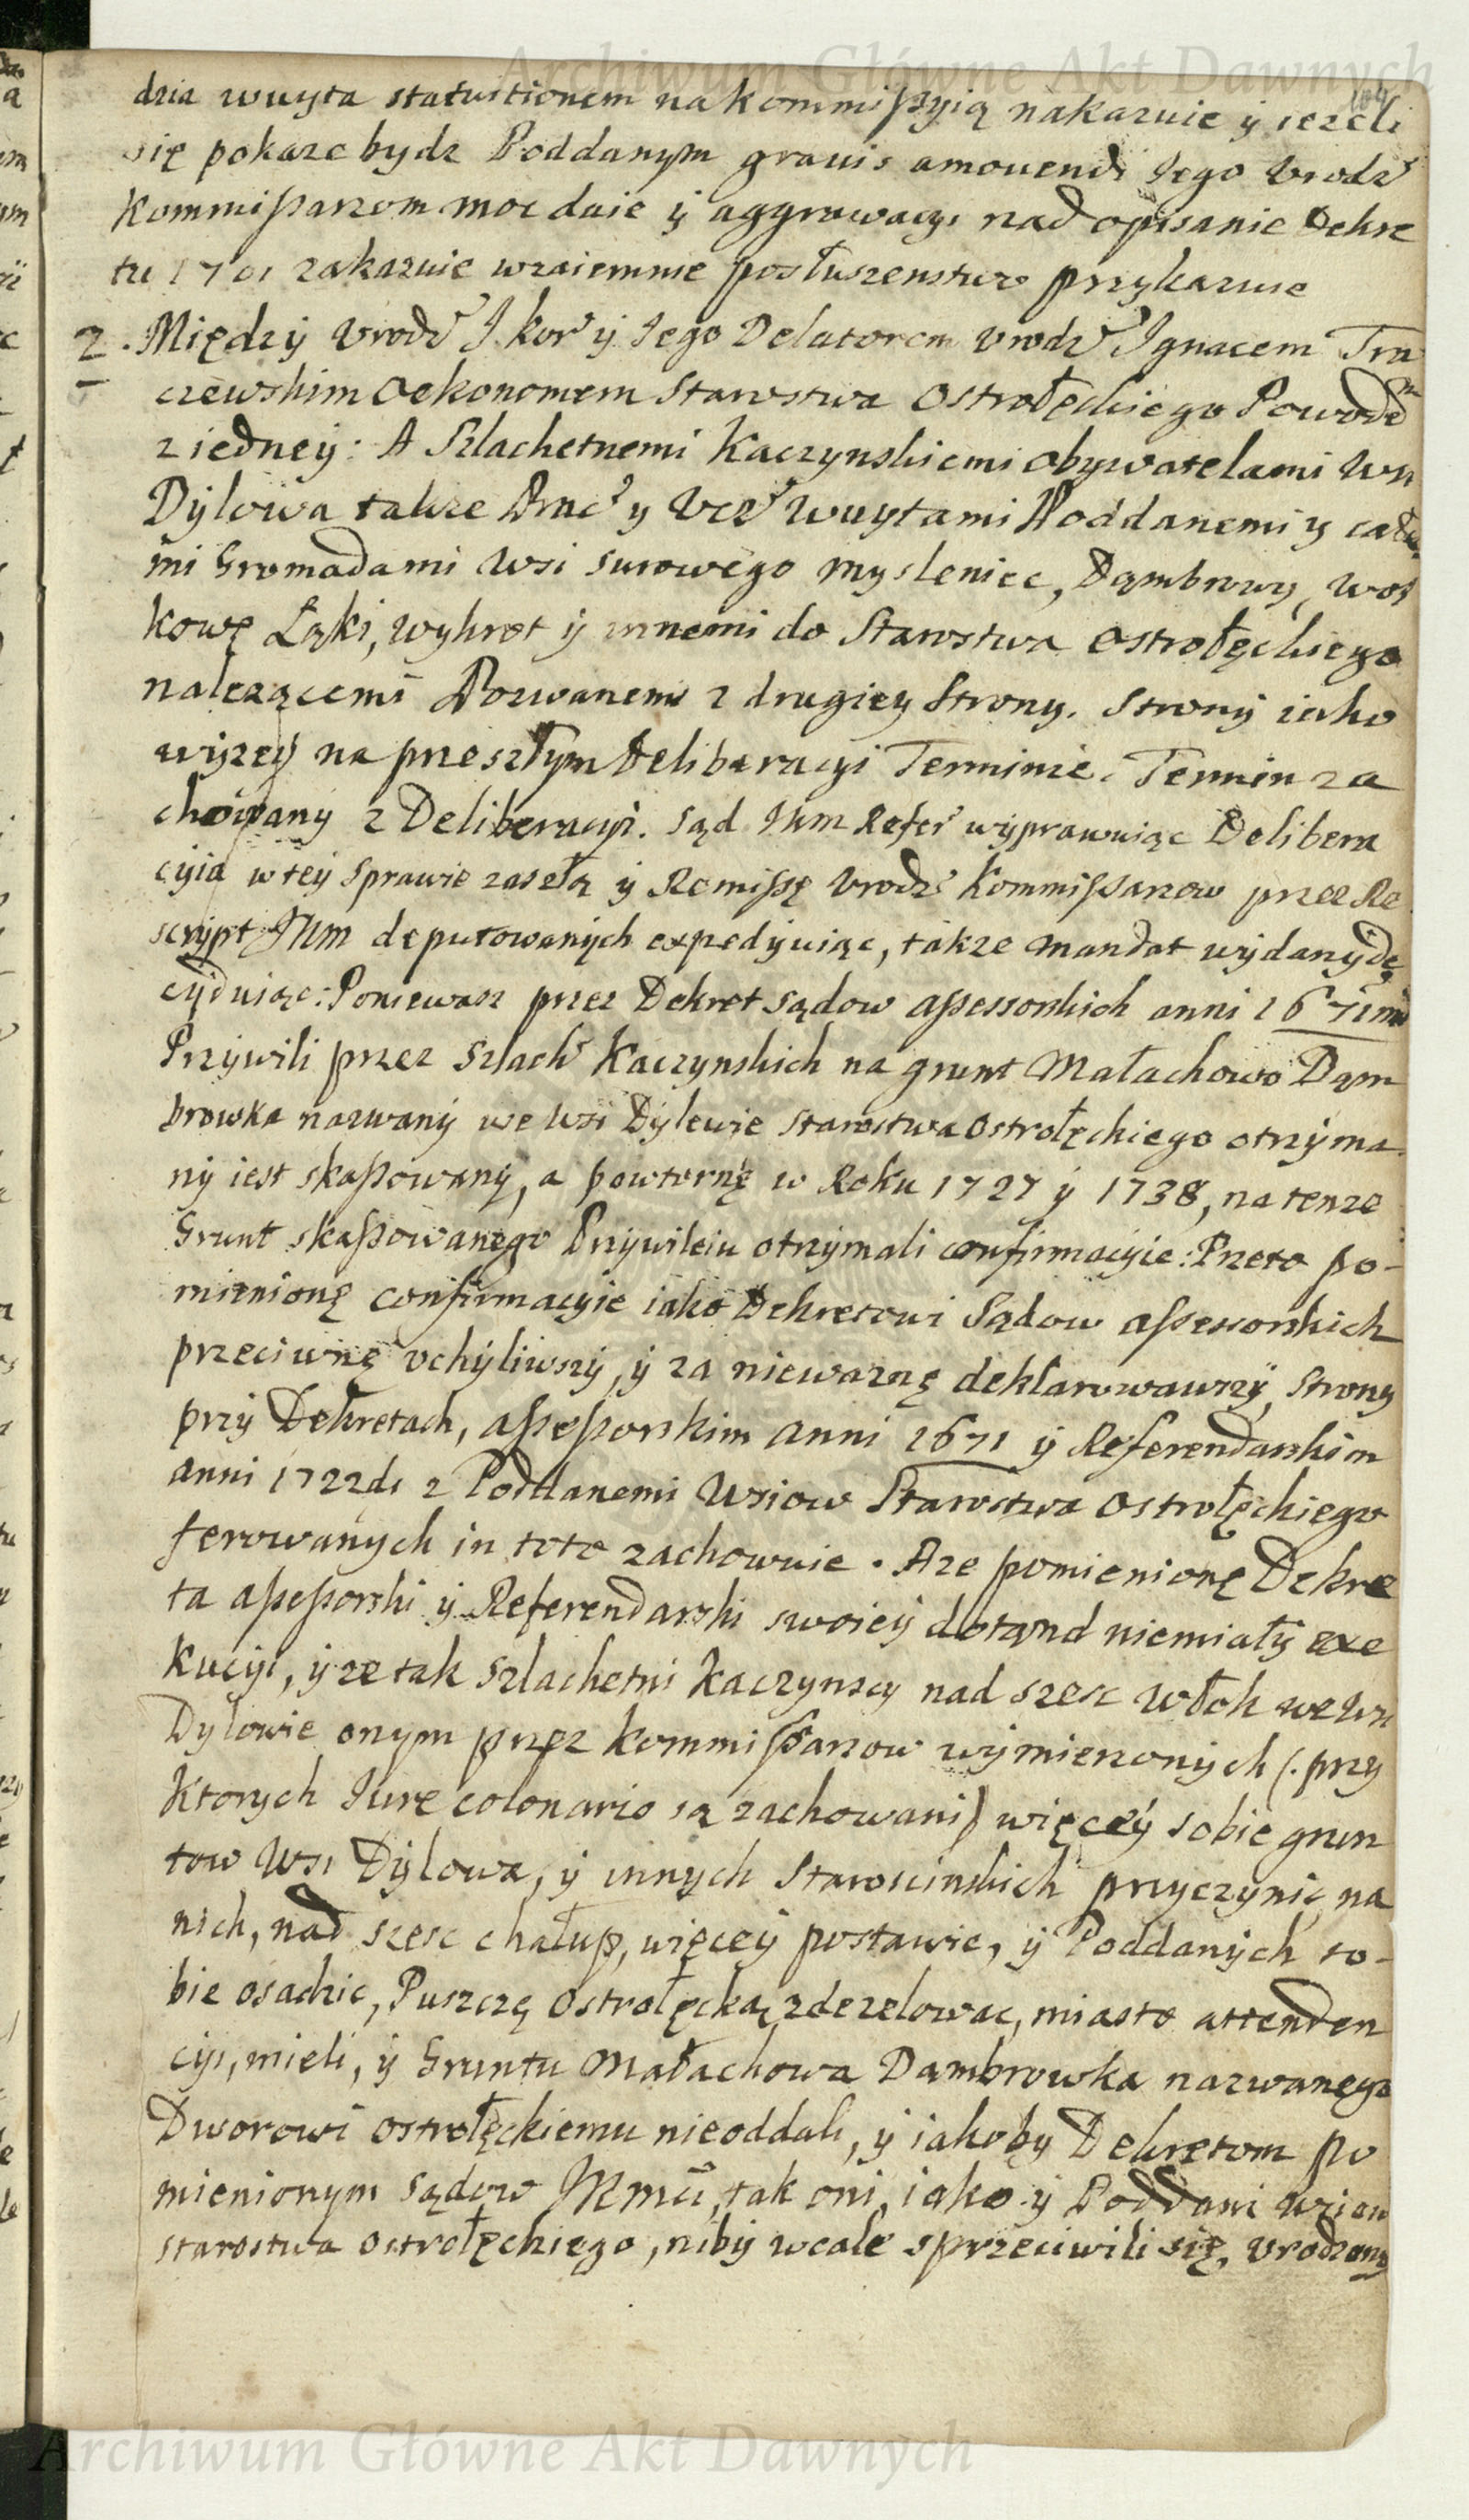 Archiwum Główne Akt Dawnych
104
dzia wuyta statuitionem na kommissyią nakazuie ÿ iezeli
się pokaze bydz Poddanym gravis amovendi Jego Vrodz
Kommissarzom moc daie ÿ aggrawacyi nad opisanie Dekre
tu 1701 zakazuie wzaiemnie posłuszenstwo przykazuie
2. Między Vrodz J. kor ÿ Jego Delatorem Vrodz Ignacem Tra
czewskim Oekonomem Starostwa Ostrołęckiego Powodem
z iedneÿ: A Szlachetnemi Kaczynskiemi obywatelami Wsi
Dÿlowa takze Prac y Vcz Wuytami Poddanemi y całe
mi Gromadami Wsi surowego mysleniec, Dąmbrowy, Woł
kowę Łąki, Wykrot ÿ innemi do Starostwa Ostrołęckiego
nalezącemi Pozwanemi z drugiey Strony. Stronÿ iako
wÿzeÿ na przeszłym Deliberacyi Terminie. Termin za
chowanÿ z Deliberacyi. Sąd JKm Refer wÿprawuiąc Delibera
cyią w teÿ Sprawie zaszłą ÿ Remissę Vrodz Kommissarzow przez Re
scrÿpt JKm deputowanÿch expedÿuiąc, takze mandat wÿdanÿ de
cÿduiąc: Poniewasz przez Dekret sądow assessorskich anni 1671mi
Przÿwili przez Szlach Kaczynskich na grunt Małachowo Dąm
browka nazwanÿ we Wsi Dÿlewie Starostwa Ostrołęckiego otrzÿma
nÿ iest skassowanÿ, a powtornę w Roku 1727 ÿ 1738, na tenze
Grunt skassowanego Przÿwileiu otrzÿmali confirmacÿie: Przeto po-
mienionę confirmacyie iako Dekretowi Sądow assessorskich
przeciwnę vchÿliwszÿ, ÿ za niewaznę deklarowawszÿ, Strony
przÿ Dekretach, assessorskim Anni 1671 ÿ Referendarskim
Anni 1722di z Poddanemi Wsiow Starostwa Ostrołęckiego
ferowanÿch in toto zachowuie. A ze pomienionę Dekre
ta assessorski ÿ Referendarski swoieÿ dotąnd niemiałÿ exe
kucÿi, ÿ ze tak Szlachetni Kaczynscy nad szesc Włok we Wsi
Dylowie onym przez kommissarzow wÿmierzonÿch (. przy
ktorych Jure colonario są zachowani) więceÿ sobie grun
tow Wsi Dÿlowa, ÿ innych Staroscinskich przyczynic, na
nich, nad szesc chałup, więceÿ postawic, ÿ Poddanÿch so-
bie osadzic, Puszczę Ostrołęcką zdezelowac, miasto attenden
cyi, mieli, ÿ Gruntu Małachowa Dambrowka nazwanego
Dworowi Ostrołęckiemu nieoddali, ÿ iakoby Dekretom po
mienionym sądow JKmci, tak oni, iako ÿ Poddani Wsiow
starostwa Ostrołęckiego, nibÿ wcale sprzeciwili się, Vrodzony
Archiwum Główne Akt Dawnych